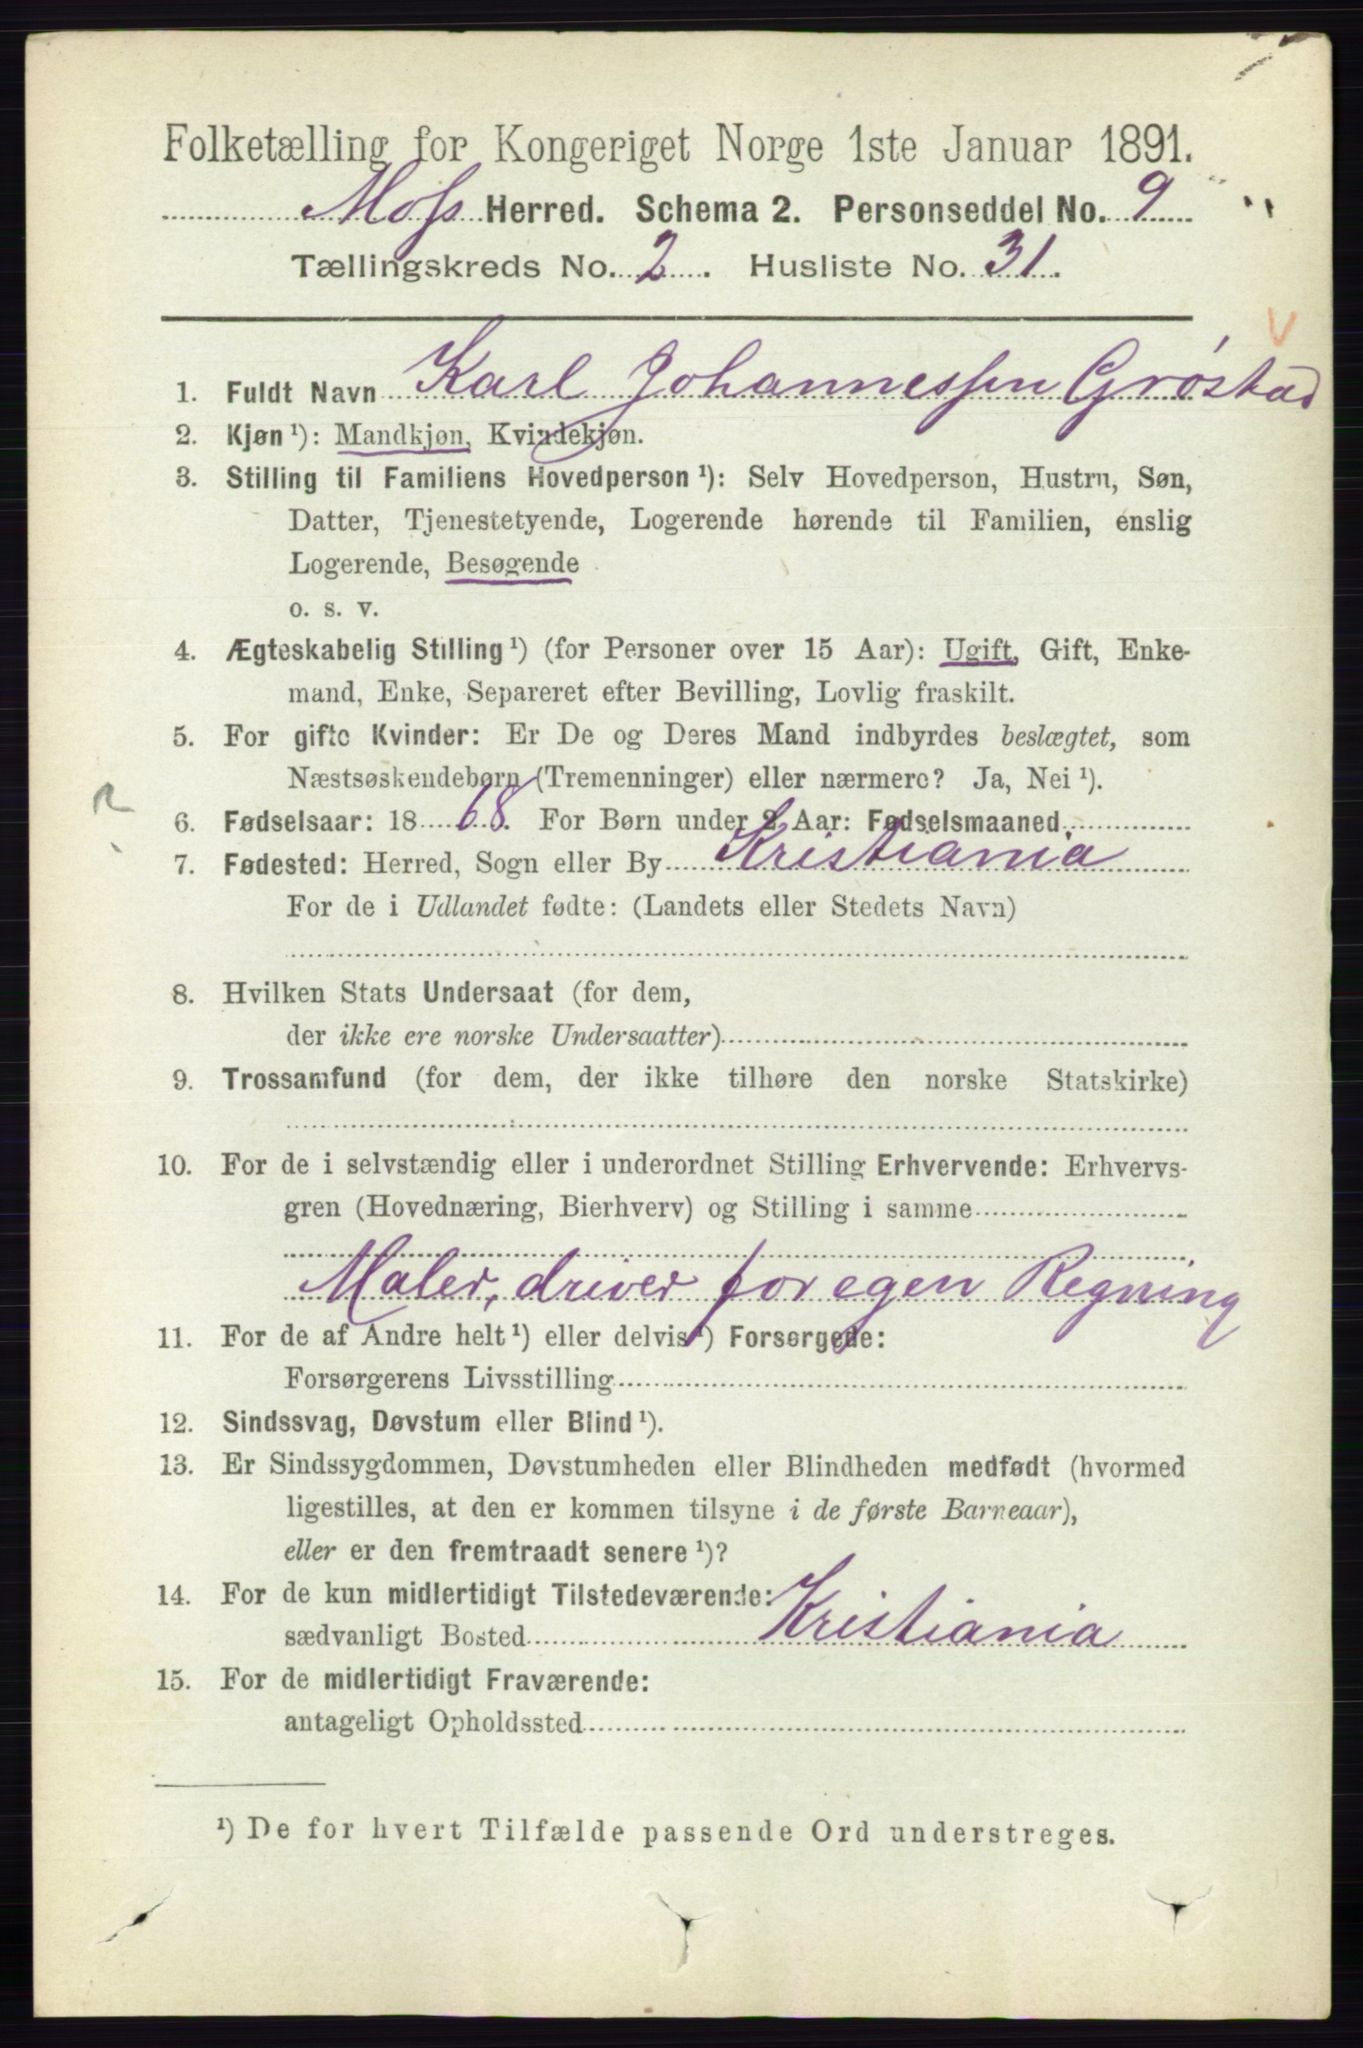 Folketælling for Kongeriget Norge 1ste Januar 1891.
Moss Herred. Schema 2. Personseddel No. 9
Tællingskreds No. 2. Husliste No. 31.
1. Fuldt Navn Karl Johannessen Grøstad
2. Kjøn ¹): Mandkjøn, Kvindekjøn.
3. Stilling til Familiens Hovedperson ¹): Selv Hovedperson, Hustru, Søn,
Datter, Tjenestetyende, Logerende hørende til Familien, enslig
Logerende, Besøgende
o. s. v.
4. Ægteskabelig Stilling ¹) (for Personer over 15 Aar): Ugift, Gift, Enke-
mand, Enke, Separeret efter Bevilling, Lovlig fraskilt.
5. For gifte Kvinder: Er De og Deres Mand indbyrdes beslægtet, som
Næstsøskendebørn (Tremenninger) eller nærmere? Ja, Nei ¹).
6. Fødselsaar: 1868. For Børn under 2 Aar: Fødselsmaaned
7. Fødested: Herred, Sogn eller By Kristiania
For de i Udlandet fødte: (Landets eller Stedets Navn)
8. Hvilken Stats Undersaat (for dem,
der ikke ere norske Undersaatter)
9. Trossamfund (for dem, der ikke tilhøre den norske Statskirke)
10. For de i selvstændig eller i underordnet Stilling Erhvervende: Erhvervs-
gren (Hovednæring, Bierhverv) og Stilling i samme
Maler, driver for egen Regning
11. For de af Andre helt ¹) eller delvis ¹) Forsørgede:
Forsørgerens Livsstilling
12. Sindssvag, Døvstum eller Blind ¹).
13. Er Sindssygdommen, Døvstumheden eller Blindheden medfødt (hvormed
ligestilles, at den er kommen tilsyne i de første Barneaar),
eller er den fremtraadt senere ¹)?
14. For de kun midlertidigt Tilstedeværende:
sædvanligt Bosted Kristiania
15. For de midlertidigt Fraværende:
antageligt Opholdssted
¹) De for hvert Tilfælde passende Ord understreges.